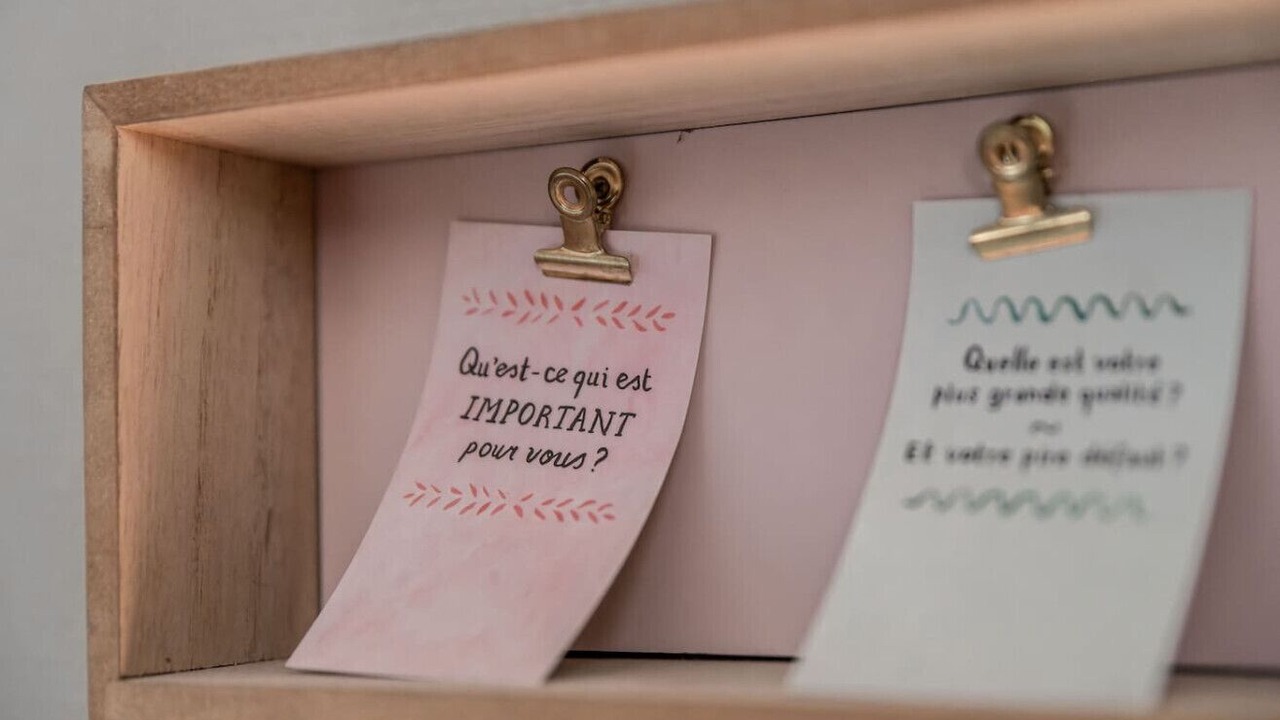 Qu'est-ce qui est
IMPORTANT
pour vous ?
Quelle est votre
plus grande qualité ?
ou
Et votre pire défaut ?